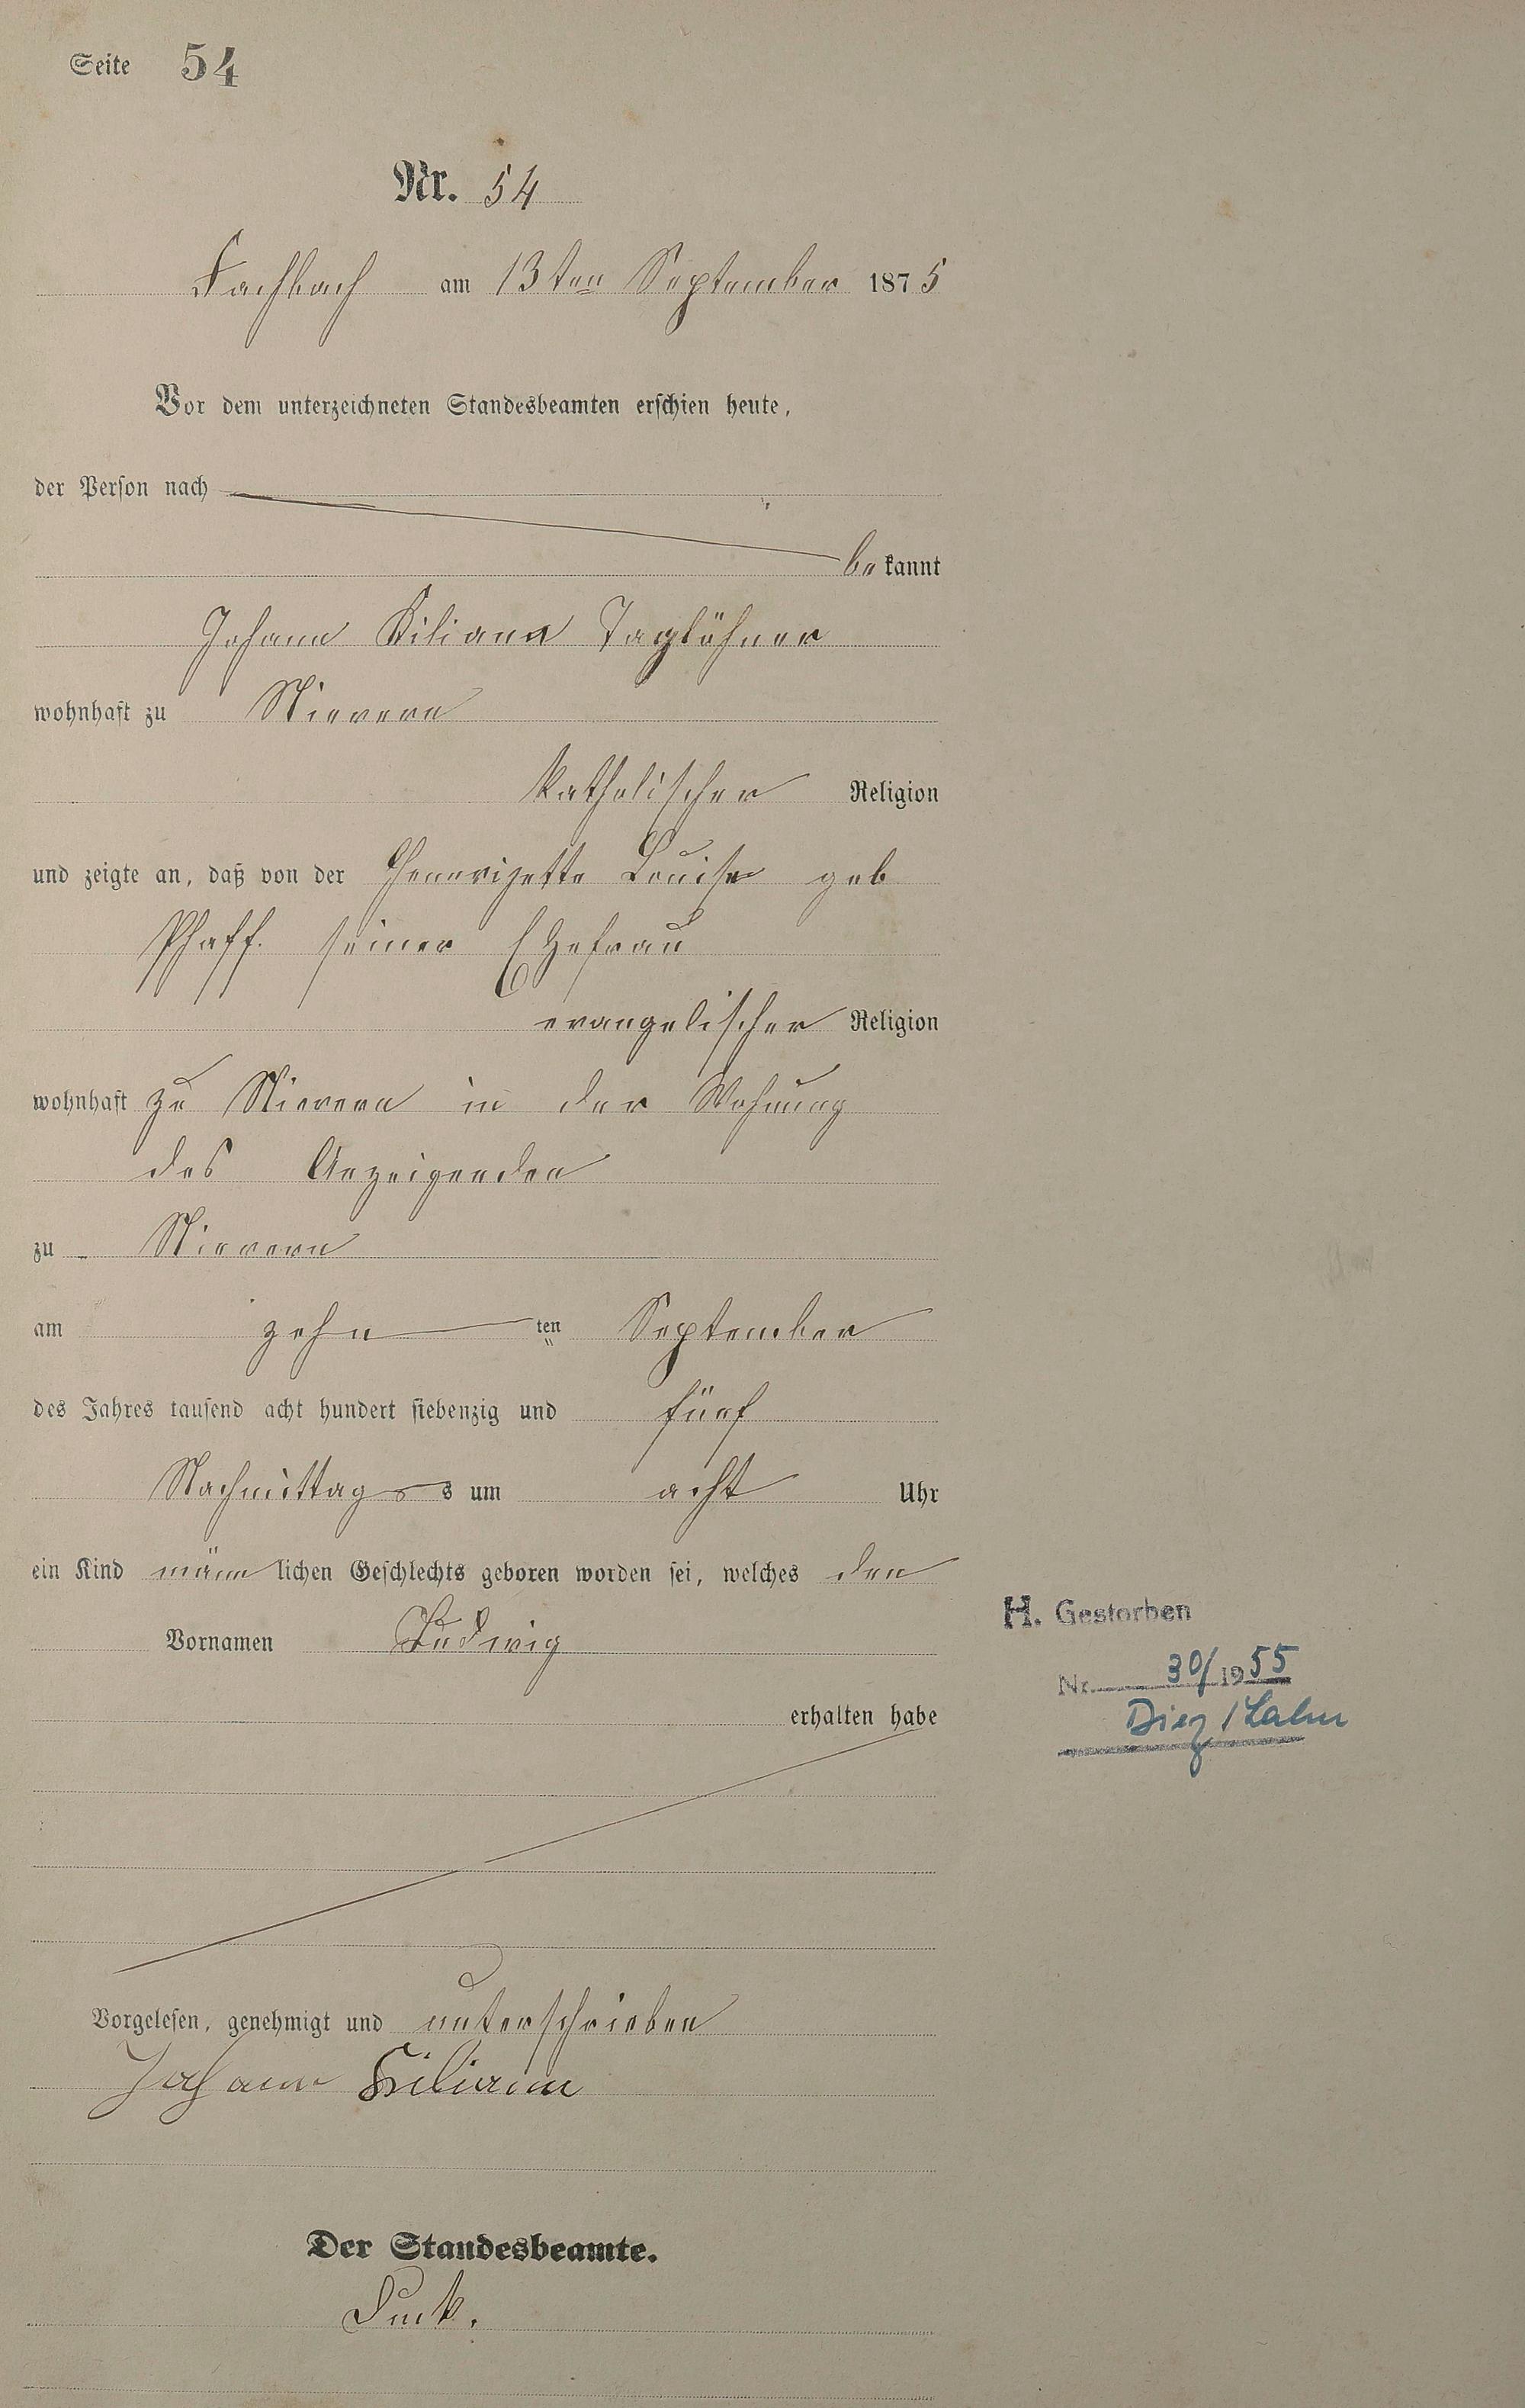 Seite 54
Nr. 54
Fachbach am 13ten September 1875
Vor dem unterzeichneten Standesbeamten erschien heute,
der Person nach
bekannt
Johann Kilian Taglöhner
wohnhaft zu Nievern
katholischer Religion
und zeigte an, daß von der Henerizette Louise geb
Pfaff. seiner Ehefrau
evangelischer Religion
wohnhaft zu Nievern in der Wohnung
des Anzeigenden
zu Nievern
am zehn ten September
des Jahres tausend acht hundert siebenzig und fünf
Nachmittags um acht Uhr
ein Kind männlichen Geschlechts geboren worden sei, welches den
Vornamen Ludwig
erhalten habe
H. Gestorben
Nr. 30/1955
Diez/Lahn
Vorgelesen, genehmigt und unterschrieben
Johann Kilian
Der Standesbeamte.